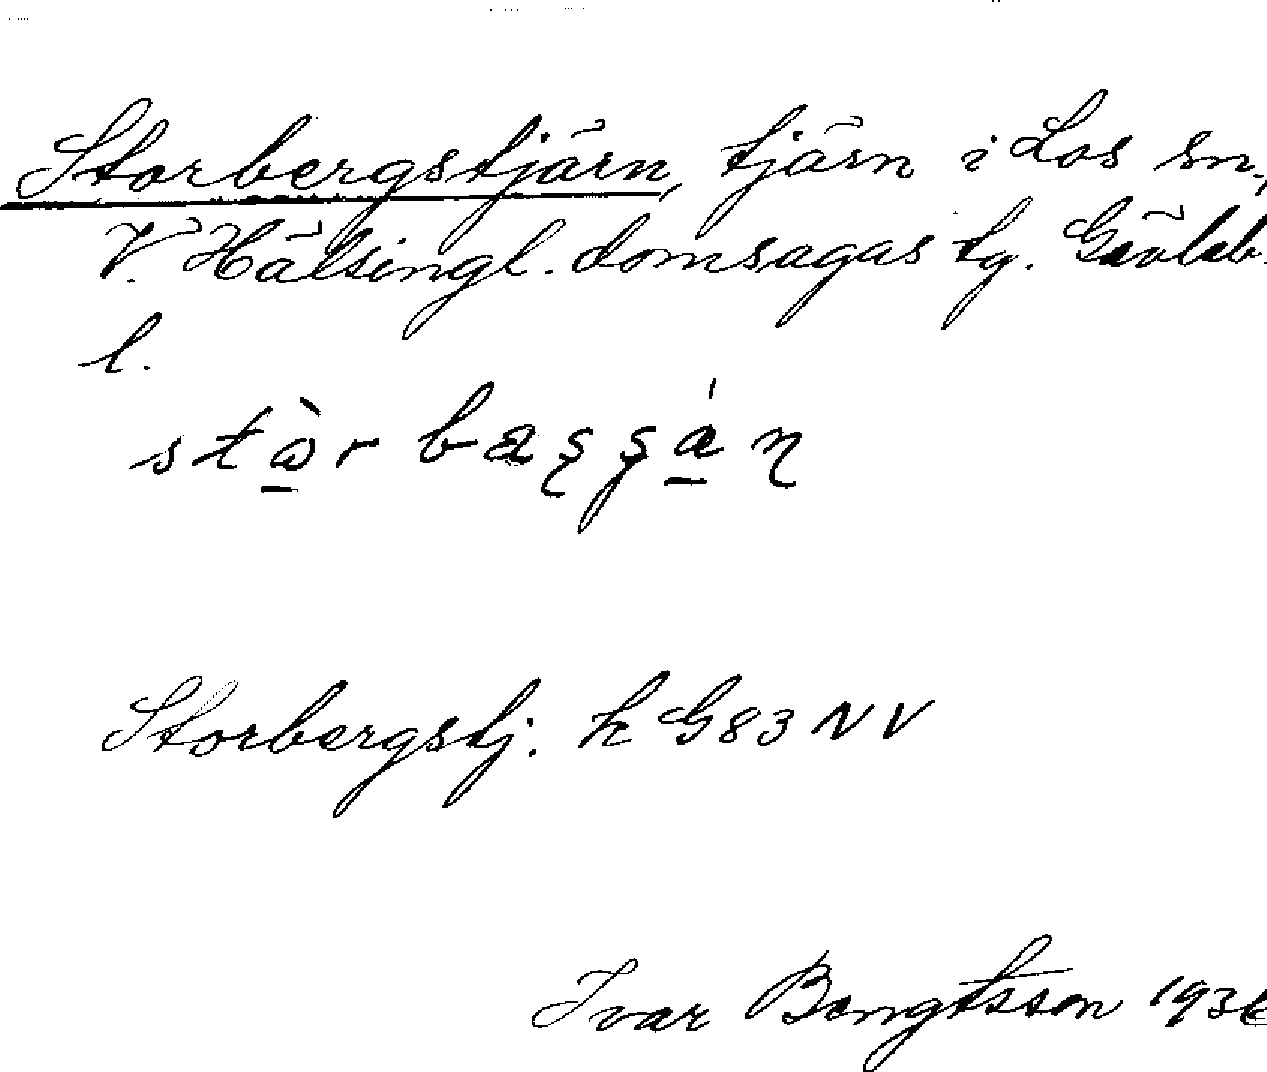 Storbergstjärn, tjärn i Los sn.,
V. Hälsingl. domsagas tg. Gävleb.
l.
Storbergstj. k G83 NV
Ivar Bengtsson